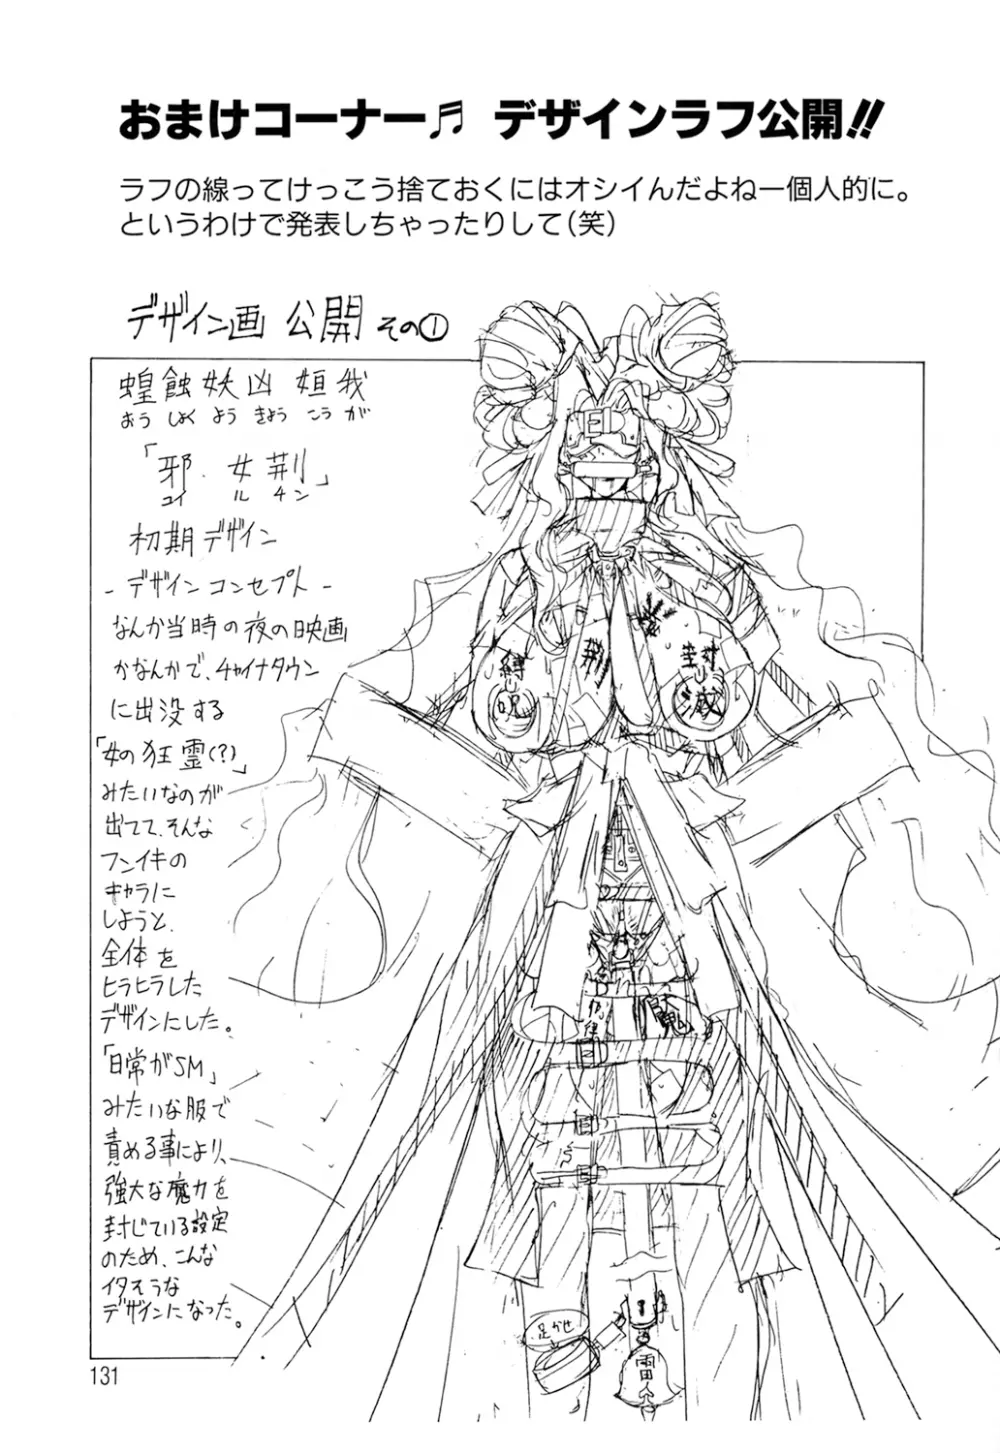 おまけコーナー♬ デザインラフ公開!!
ラフの線ってけっこう捨ておくにはオシイんだよねー個人的に。
というわけで発表しちゃったりして(笑)
デザイン画 公開 その①
蝗蝕妖凶 姮我
おう しょく よう きょう こう が
「邪・女荊」
ユイ ル チン
初期デザイン
-デザインコンセプト-
なんか当時の夜の映画
かなんかで、チャイナタウン
に出没する
「女の狂霊(?)」
みたいなのが
出てて、そんな
フンイキの
キャラに
しようと、
全体を
ヒラヒラした
デザインにした。
「日常がSM」
みたいな服で
責める事により、
強大な魔力を
封じている設定
のため、こんな
イタそうな
デザインになった。
縛
呪
荊
封
滅
魔
足かせ
雷
131